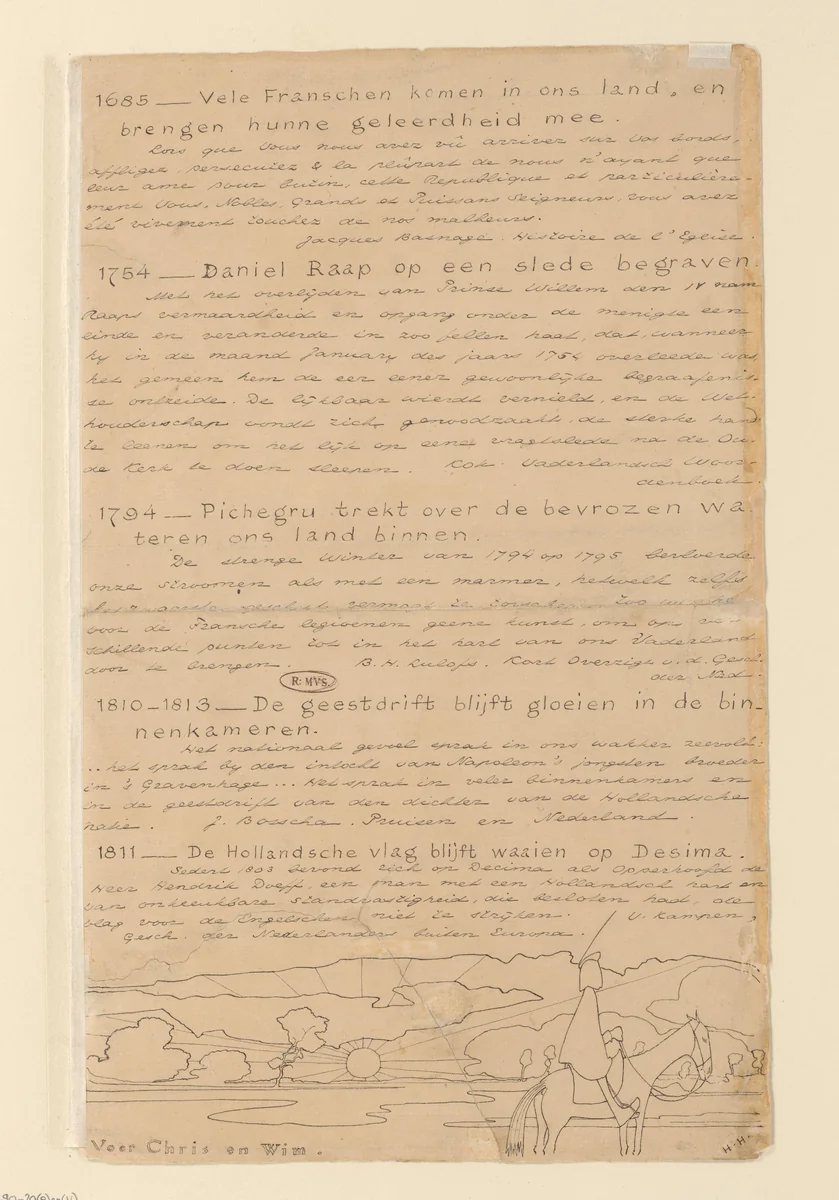 1685 — Vele Franschen komen in ons land, en
brengen hunne geleerdheid mee.
Lors que Vous nous avez vû arriver sur vos bords,
affligez, persecutez & la plûpart de nous n'ayant que
leur ame pour butin, cette Republique et particulière-
ment Vous, Nobles, Grands et Puissans Seigneurs, vous avez
été vivement touchez de nos malheurs.
Jacques Basnage. Histoire de l'Eglise.
1754 — Daniel Raap op een slede begraven.
Met het overlijden van Prinse Willem den IV nam
Raaps vermaardheid en opgang onder de menigte een
einde en veranderde in zoo fellen haat, dat, wanneer
hy in de maand January des jaars 1754 overleede was,
het gemeen hem de eer eener gewoonlijke begraafenis-
se ontzeide. De lijkbaar wierdt vernield, en de Wet-
houderschap vondt zich genoodzaakt, de sterke hand
te leenen om het lijk op eene vragtslede na de Ou-
de Kerk te doen sleepen. Kok. Vaderlandsch Woor-
denboek.
1794 — Pichegru trekt over de bevrozen wa-
teren ons land binnen.
De strenge Winter van 1794 op 1795 bevloerde
onze stroomen als met een marmer, hetwelk zelfs
het geschut vermogt te Zoo
voor de Fransche legioenen geene kunst, om op ver-
schillende punten tot in het hart van ons Vaderland
door te brengen. B. H. Lulofs. Kort Overzigt v. d. Gesch.
der Ned.
R: MVS.
1810-1813 — De geestdrift blijft gloeien in de bin-
nenkameren.
Het nationaal gevoel sprak in ons wakker zeevolk:
.. het sprak by den intocht van Napoleon's jongsten broeder
in 's Gravenhage... Het sprak in veler binnenkamers en
in de geestdrift van den dichter van de Hollandsche
natie. J. Bosscha. Pruisen en Nederland.
1811 — De Hollandsche vlag blijft waaien op Desima.
Sedert 1803 bevond zich op Decima als Opperhoofd de
Heer Hendrik Doeff, een man met een Hollandsch hart en
van onkreukbare standvastigheid, die besloten had, de
vlag voor de Engelschen niet te strijken. V. Kampen,
Gesch. der Nederlanders buiten Europa.
Voor Chris en Wim.
H-H.